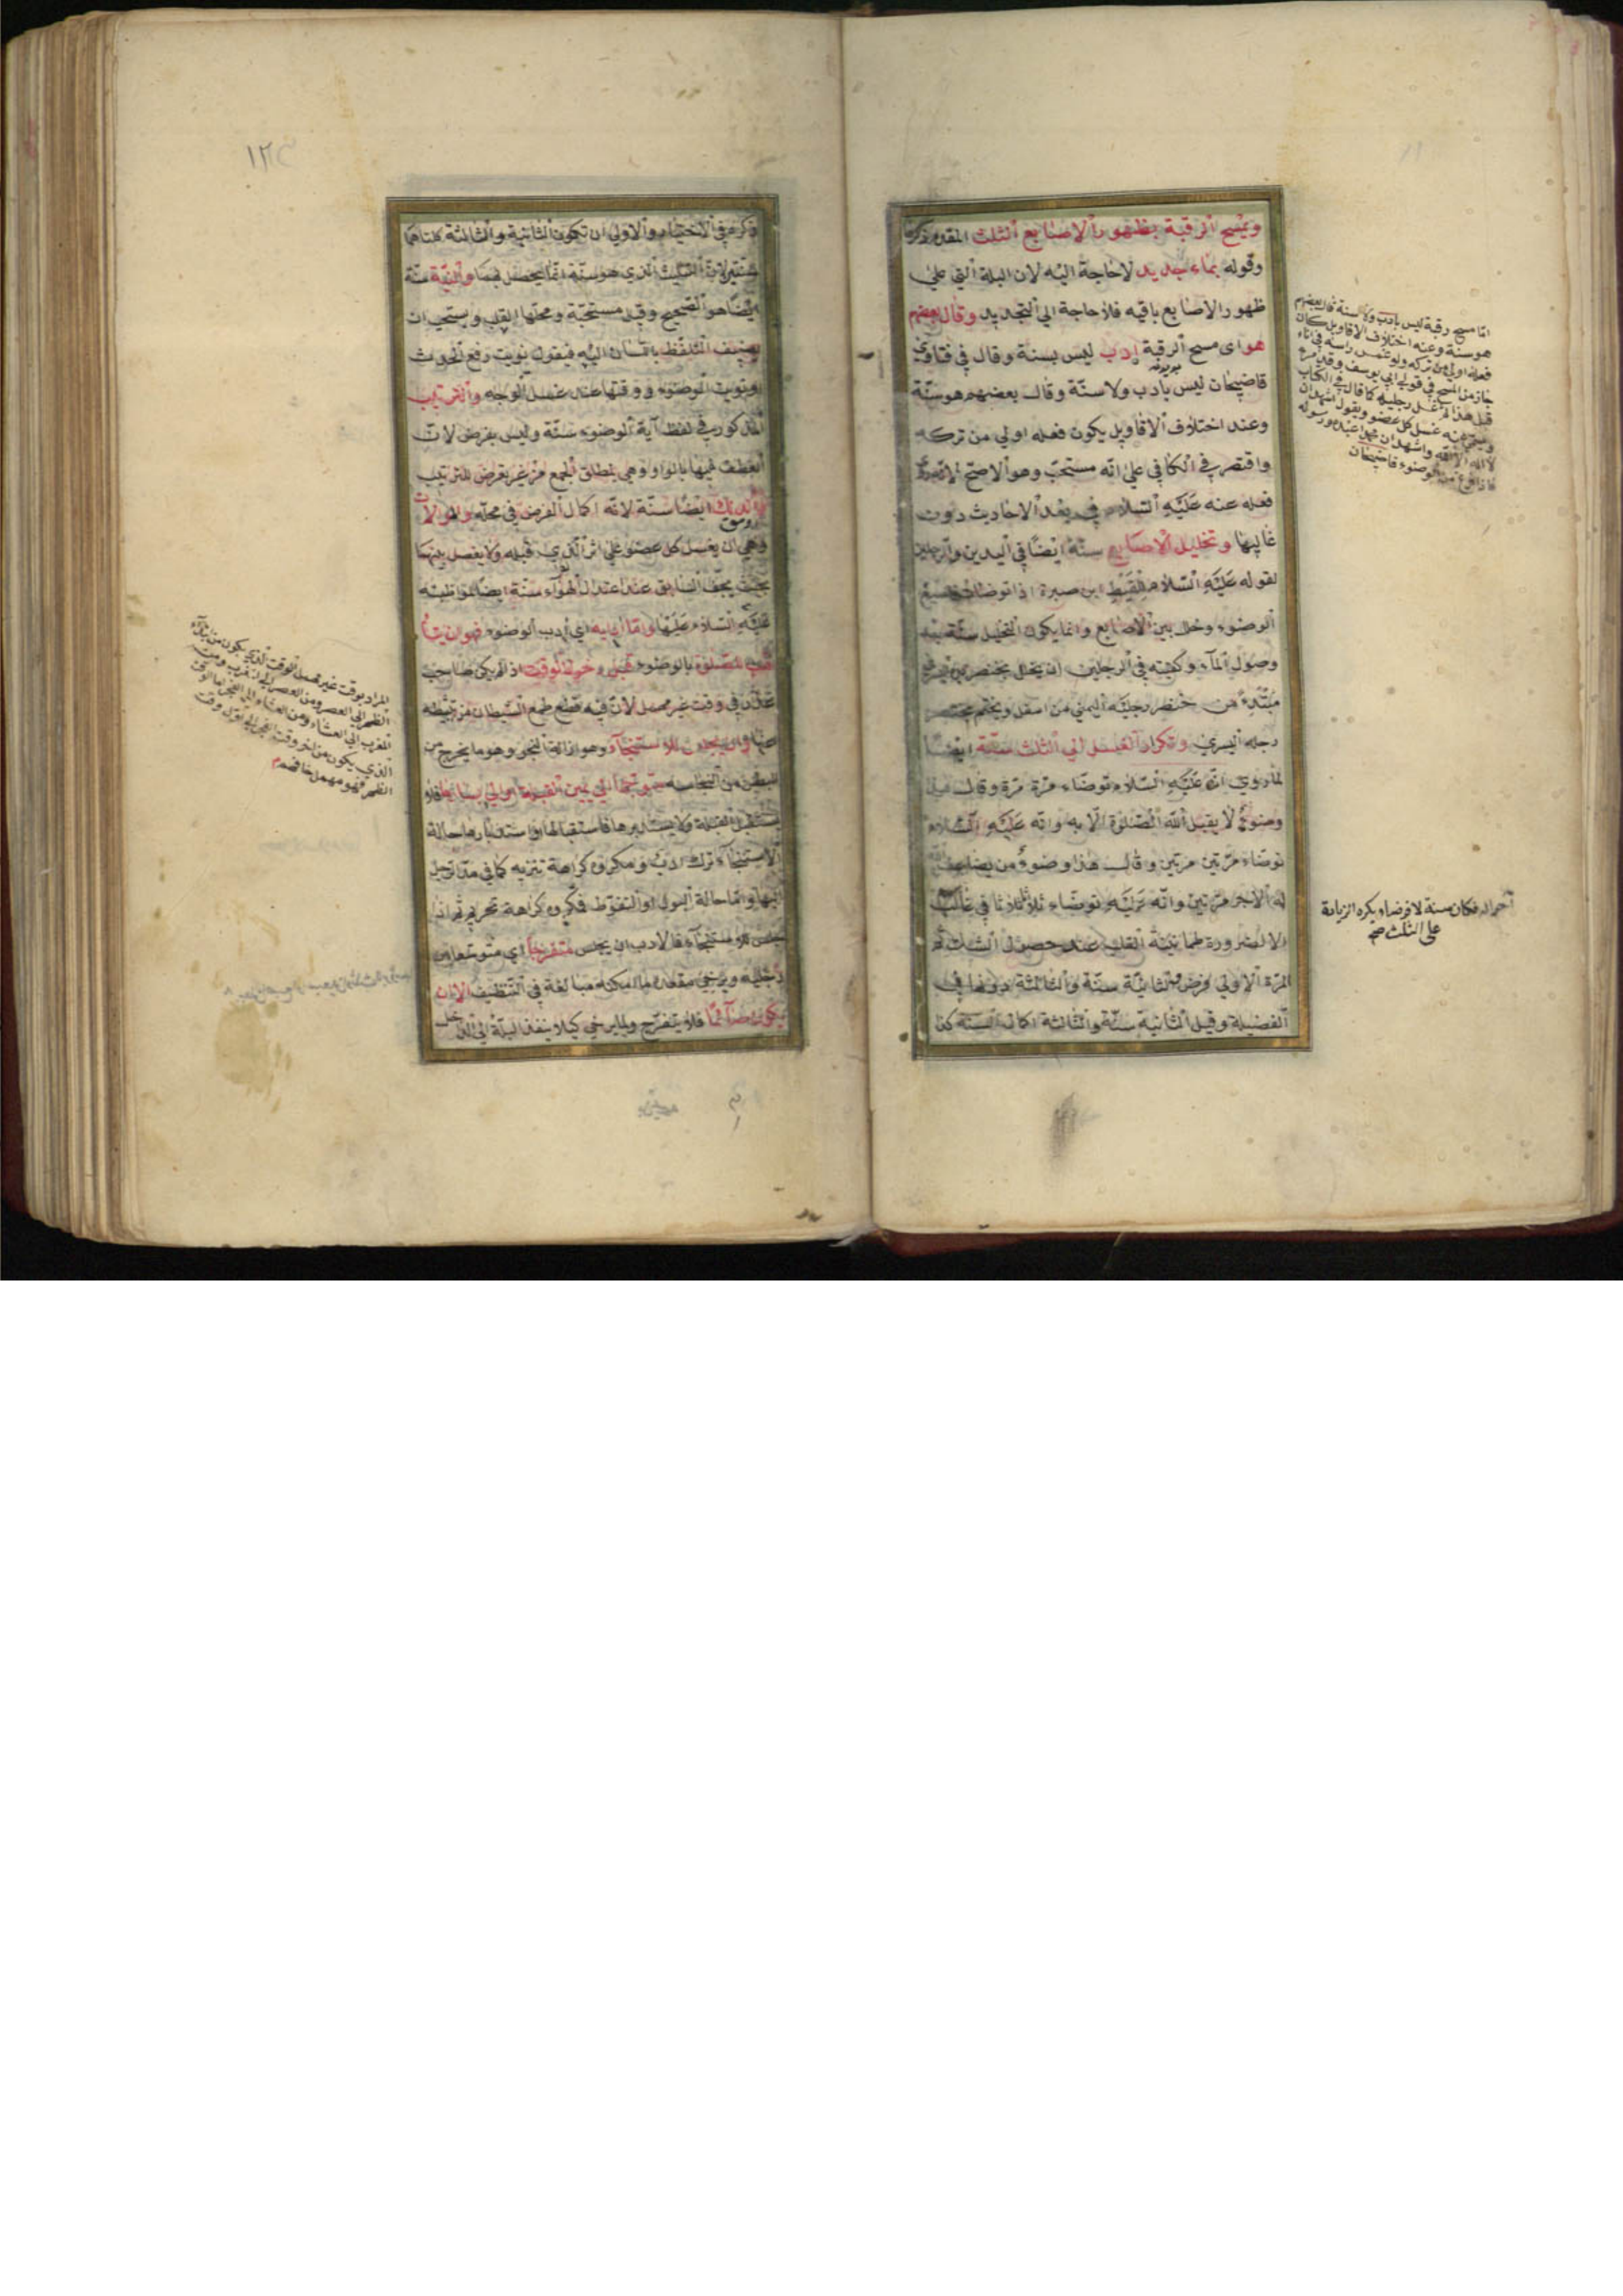 ويمسح الرقبة بظهور الاصابع الثلث المقدم ذكرها
وقوله بماء جديد لاحاجة اليه لان البلة التي على
ظهور الاصابع باقيه فلا حاجة الي التجديد وقال بعضهم
هو اى مسح الرقبة ادب ليس بسنة وقال في فتاوى
قاضيخان ليس بادب ولا سنة وقال بعضهم هو سنة
وعند اختلاف الاقاويل يكون فعله اولي من تركه
واقتصر في الكافي على انه مستحب وهو الاصح
فعله عنه عليه السلام في بعد الاحاديث دون
غالبها وتخليل الاصابع سنة ايضا في اليدين والرجلين
لقوله عليه السلام للقيط ابن صبرة اذا توضات فاسبغ
الوضوء وخلل بين الاصابع وانما يكون التخليل سنة بعد
وصول المآء وكيفيته في الرجلين ان يخلل بخنصر
مبتدءً من خنصر رجليه اليمني من اسفل ويختم بخنصر
رجله اليسري وتكرار الغسل الي الثلث سنة ايضا
لما روي انه عليه السلام توضاء مرة مرة وقال هذا
وضوءٌ لا يقبل الله الصلوة الا به وانه عليه السلام
توضاء مرتين مرتين وقال هذا وضوءٌ من يضاعف
له الاجر مرتين وانه عليه توضاء ثلاثا ثلاثا في غالب
الا لضرورة طمانينة القلب عند حصول الشك ثم
المرة الاولي فرض والثانية سنة والثالثة دونها في
الفضيلة وقيل الثانية سنة والثالثة اكمال السنة كذا
اما مسح رقبة ليس بادب ولا سنة قال بعضهم
هو سنة وعند اختلاف الاقاويل كان
فعله اولي من تركه ولو غمس راسه في اناء
جاز من المسح في قول ابي يوسف وقد
قبل هذا ثم غسل رجليه كما قال في الكتاب
غسل كل عضو ويقول اشهد ان
لا اله الا الله واشهد ان محمدا عبده ورسوله
فاذا فرغ من الوضوء قاضيخان
فكان سنة لا فرضا ويكره الزيادة
على الثلث صح
١٢
ذكره في الاختيار والاولي ان تكون الثانية والثالثة كلتاهما
سنتين لان التثليث الذي هو سنة انما يحصل بهما والنية سنة
ايضا هو الصحيح وقيل مستحبة ومحلها القلب ويستحب ان
يضيف التلفظ باللسان اليه فيقول نويت رفع الحدث
او نويت الوضوء ووقتها عند غسل الوجه والترتيب
المذكور في لفظ آية الوضوء سنة وليس بفرض لان
العطف فيها بالواو وهي لمطلق الجمع من غير تعرض للترتيب
والدلك ايضا سنة لانه اكمال الفرض في محله والموالات
وهي ان يغسل كل عضو علي اثر الذي قبله ولا يفصل بينهما
بحيث يجف السابق عند اعتدال الهوآء سنة ايضا لمواظبته
عليه السلام عليها واما آدابه اي أدب الوضوء فهو ان يتأهب
للصلوة بالوضوء قبل دخول الوقت اذا لم يكن صاحب
عذر في وقت غير مهمل لان فيه قطع طمع الشيطان من تثبيطه
عنها وان يجلس للاستنجآء وهو ازالة النجو وهو ما يخرج من
البطن من النجاسة متوجها الي يمين القبلة او الي يسارها فلا
يستقبل القبلة ولا يستدبرها فاستقبالها واستدبارها حالة
الاستنجآء ترك ادب ومكروه كراهة تنزيه كما في مد الرجل
اليها واما حالة البول او التغوط فكروه كراهة تحريم ثم اذا
جلس للاستنجآء فالادب ان يجلس متفرجا اي متوسعا بين
رجليه ويرخي مقعده ما امكنه مبالغة في التنظيف الا ان
يكون صآئما فلا يتفرج ولا يرخي كيلا ينفذ البلة الي الداخل
المراد بوقت غير مهمل الوقت الذي يكون من
الظهر الي العصر ومن العصر الي المغرب ومن
المغرب الي العشاء ومن العشاء الي الفجر اما الوقت
الذي يكون من اخر وقت الفجر الي اول وقت
الظهر فهو مهمل